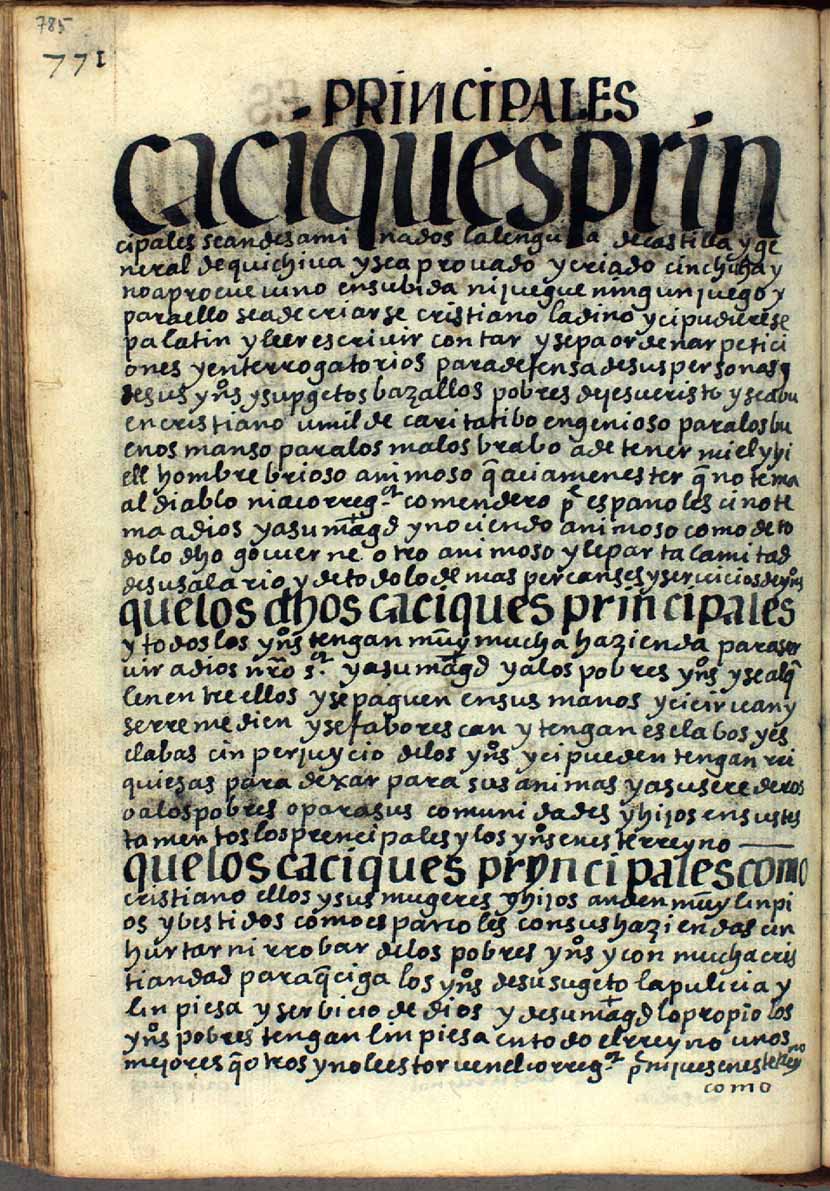 785
771
PRINCIPALES
caciques prin
cipales sean desaminados la lengua de castilla y ge
neral de quichiua y sea prouado y criado cin chicha y
no aproeue uino en su bida ni juegue ningun juego y
para ello sea de criarse cristiano ladino y ci pudiere se
pa latin y leer escriuir contar y sepa ordenar petici
ones y enterrogatorios para defensa de sus personas y
de sus yos y supgetos bazallos pobres de jesucristo y sea bu
en cristiano umilde caritatibo engenioso para los bu
enos manso para los malos brabo a de tener miel y hi
ell hombre brioso animoso q̃ aci a menester q̃ no tema
al diablo ni a correg.or comendero pe espanoles ci no te
ma a dios y a su magd y no ciendo animoso como de to
do lo dho gouierne otro animoso y le parta la mitad
de su salario y de todo lo demas percanses y seruicios de yos
que los dhos caciques principales
y todos los yos tengan muy mucha hazienda para ser
uir a dios nro s.or y a su magd y a los pobres yos y se alq̃
len entre ellos y se paguen en sus manos y ci ciruean y
se rremedien y se faborescan y tengan esclabos y es
clabas cin perjuycio de los yos y ci pueden tengan rri
quiesas para dexar para sus animas y a sus erederos
o a los pobres o para sus comunidades y hijos en sus tes
tamentos los prencipales y los yos en este rreyno
que los caciques pryncipales como
cristiano ellos y sus mugeres y hijos anden muy linpi
os y bestidos como espanoles con sus haziendas cin
hurtar ni rrobar de los pobres yos y con mucha cris
tiandad para q̃ ciga los yos de su sugeto la pulicia y
linpiesa y serbicio de dios y de su magd lo propio los
yos pobres tengan linpiesa en todo el rreyno unos
mejores q̃ otros y no le estoruen el correg.or pe ni jues en este rrey
no
como